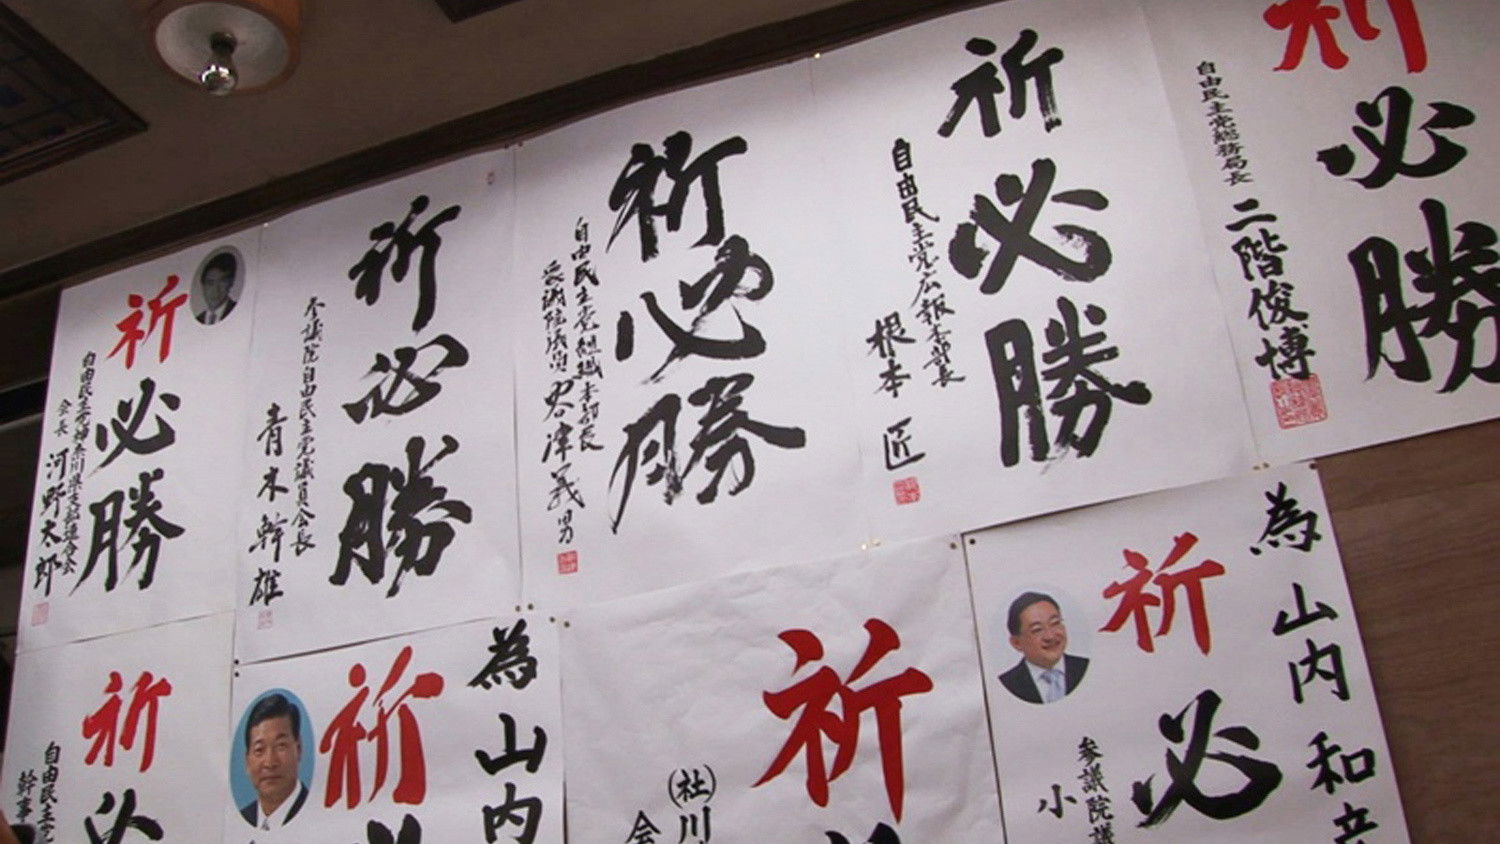 祈必勝
自由民主党神奈川県支部連合会
会長 河野太郎
祈必勝
参議院自由民主党議員会長
青木幹雄
祈必勝
自由民主党組織本部長
衆議院議員 谷津義男
祈必勝
自由民主党広報本部長
根本匠
祈必勝
自由民主党総務局長
二階俊博
祈必
自由民主党
幹事
為山内
祈
祈
(社)川
会
為山内和
祈必
参議院議
小